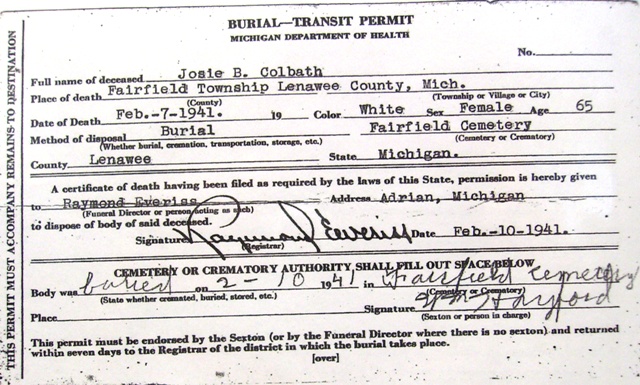 BURIAL—TRANSIT PERMIT
MICHIGAN DEPARTMENT OF HEALTH
No.
Full name of deceased Josie B. Colbath
Place of death Fairfield Township Lenawee County, Mich.
(County) (Township or Village or City)
Date of Death Feb.-7-1941. 19 Color White Sex Female Age 65
Method of disposal Burial Fairfield Cemetery
(Whether burial, cremation, transportation, storage, etc.) (Cemetery or Crematory)
County Lenawee State Michigan.
A certificate of death having been filed as required by the laws of this State, permission is hereby given
to Raymond Everiss Address Adrian, Michigan
(Funeral Director or person acting as such)
to dispose of body of said deceased.
Signature Raymond Everiss Date Feb.-10-1941.
(Registrar)
CEMETERY OR CREMATORY AUTHORITY SHALL FILL OUT SPACE BELOW
Body was buried on 2-10 1941 in Fairfield Cemetery
(State whether cremated, buried, stored, etc.) (Cemetery or Crematory)
Place Signature Wm
(Sexton or person in charge)
This permit must be endorsed by the Sexton (or by the Funeral Director where there is no sexton) and returned
within seven days to the Registrar of the district in which the burial takes place.
[over]
THIS PERMIT MUST ACCOMPANY REMAINS TO DESTINATION